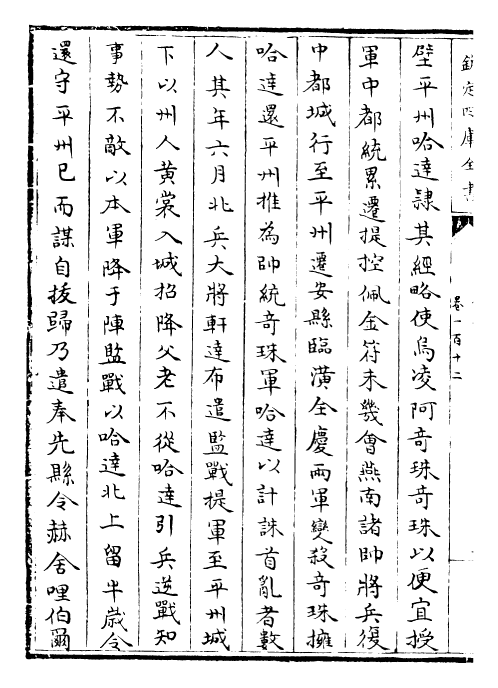 欽定四庫全書
卷一百十二
壁平州哈達隷其經略使烏凌阿奇珠奇珠以便宜授
軍中都統累遷提控佩金符未幾會燕南諸帥將兵復
中都城行至平州遷安縣臨潢全慶兩軍變殺奇珠擁
哈達還平州推為帥統奇珠軍哈達以計誅首亂者數
人其年六月北兵大將軒達布遣監戰提軍至平州城
下以州人黄裳入城招降父老不從哈達引兵逆戰知
事勢不敵以本軍降于陣監戰以哈達北上留半嵗令
還守平州已而謀自拔歸乃遣奉先縣令赫舍哩伯爾